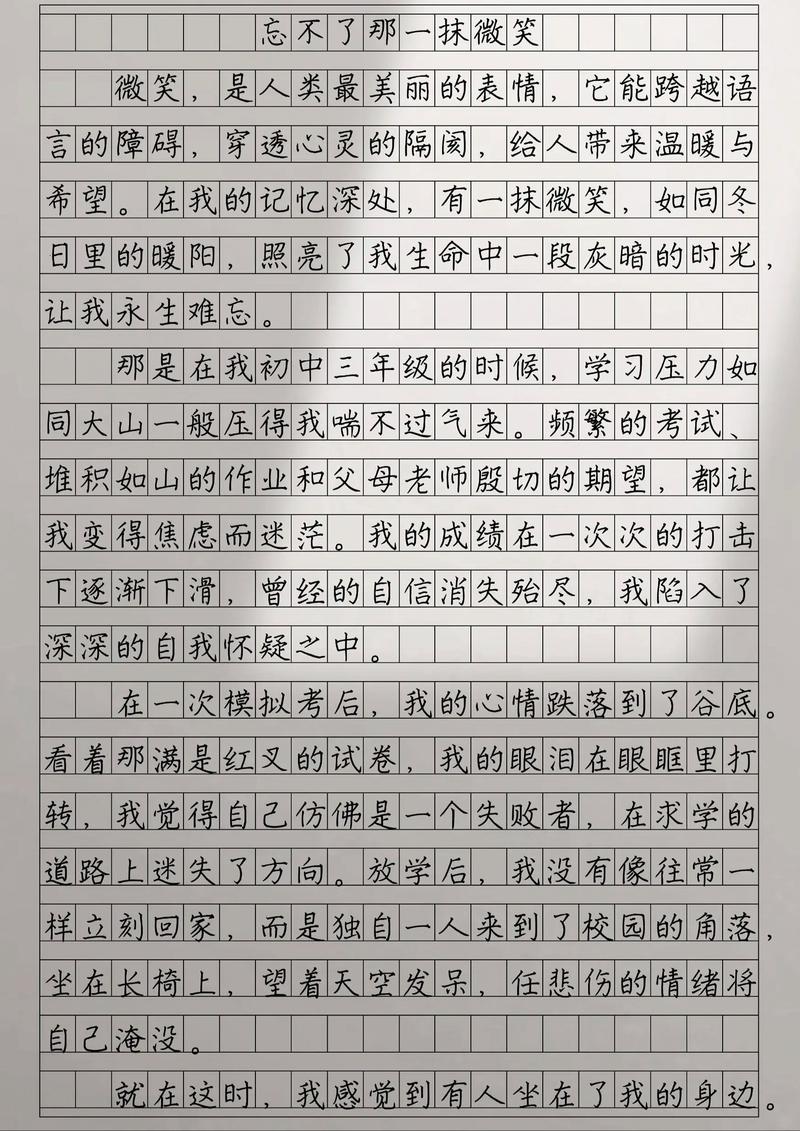 忘不了那一抹微笑
微笑，是人类最美丽的表情，它能跨越语
言的障碍，穿透心灵的隔阂，给人带来温暖与
希望。在我的记忆深处，有一抹微笑，如同冬
日里的暖阳，照亮了我生命中一段灰暗的时光，
让我永生难忘。
那是在我初中三年级的时候，学习压力如
同大山一般压得我喘不过气来。频繁的考试、
堆积如山的作业和父母老师殷切的期望，都让
我变得焦虑而迷茫。我的成绩在一次次的打击
下逐渐下滑，曾经的自信消失殆尽，我陷入了
深深的自我怀疑之中。
在一次模拟考后，我的心情跌落到了谷底。
看着那满是红叉的试卷，我的眼泪在眼眶里打
转，我觉得自己仿佛是一个失败者，在求学的
道路上迷失了方向。放学后，我没有像往常一
样立刻回家，而是独自一人来到了校园的角落，
坐在长椅上，望着天空发呆，任悲伤的情绪将
自己淹没。
就在这时，我感觉到有人坐在了我的身边。